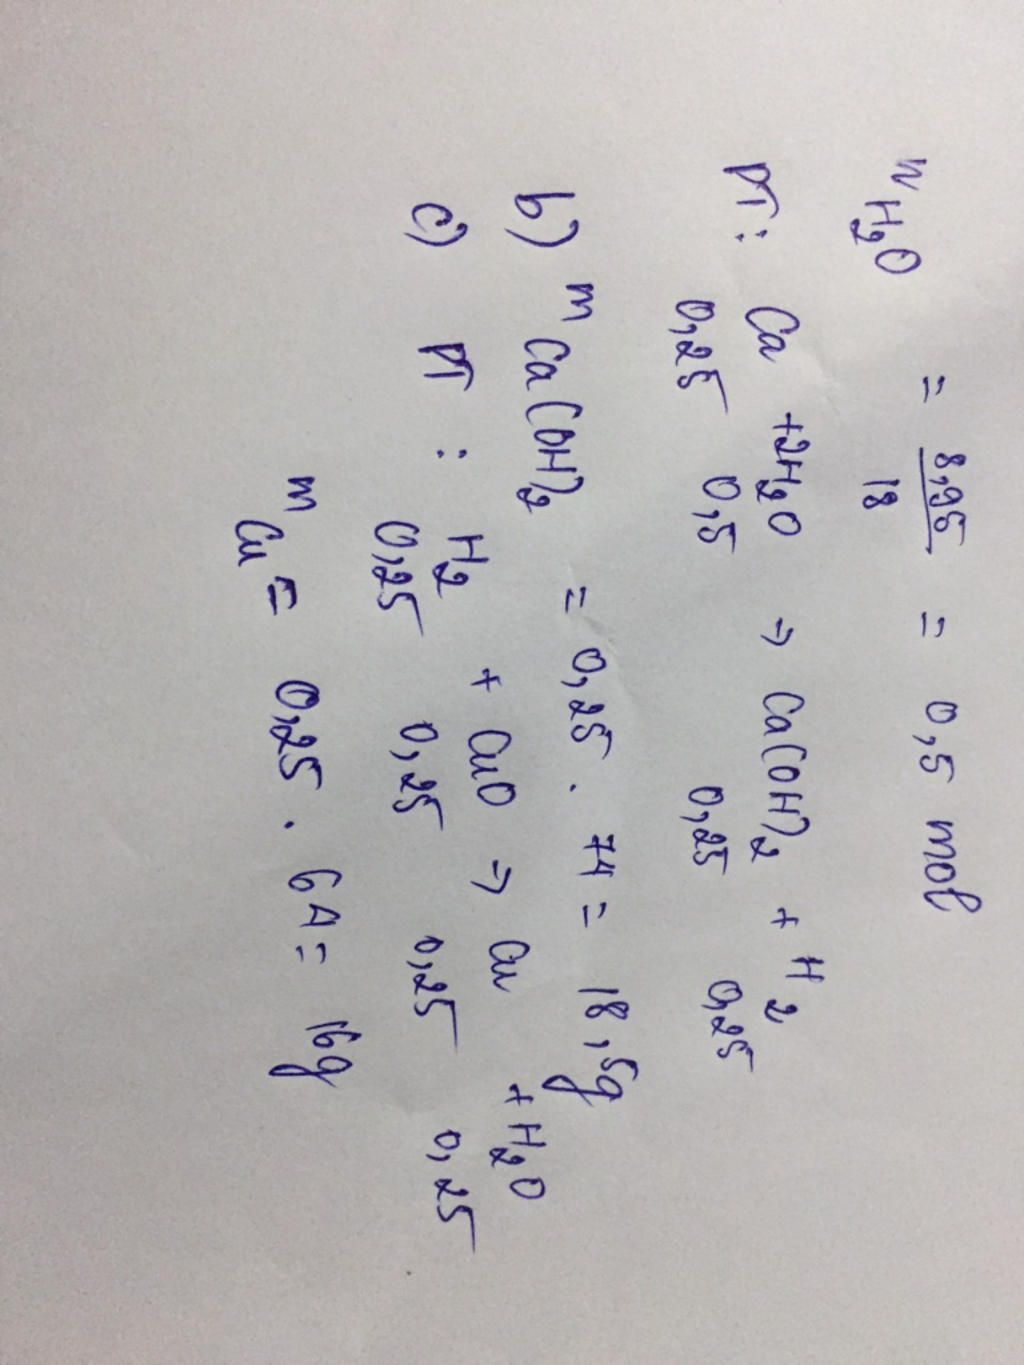 n H2O = 8,95/18 = 0,5 mol
PT: Ca + 2H2O → Ca(OH)2 + H2
0,25 0,5 0,25 0,25
b) m Ca(OH)2 = 0,25 . 74 = 18,5g
c) PT : H2 + CuO → Cu + H2O
0,25 0,25 0,25 0,25
m Cu = 0,25 . 64 = 16g